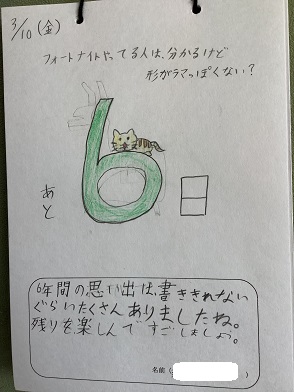 3/10(金)
フォートナイトやってる人は、分かるけど
形がラマっぽくない?
あと
6日
6年間の思い出は、書ききれない
ぐらいたくさんありましたね。
残りを楽しんですごしましょう。
名前(
)